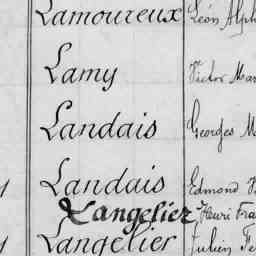 Lamoureux Léon Alph
Lamy Victor Mar
Landais Georges M
Landais Edmond
Langeliez Henri Fra
Langelier Julien Fe